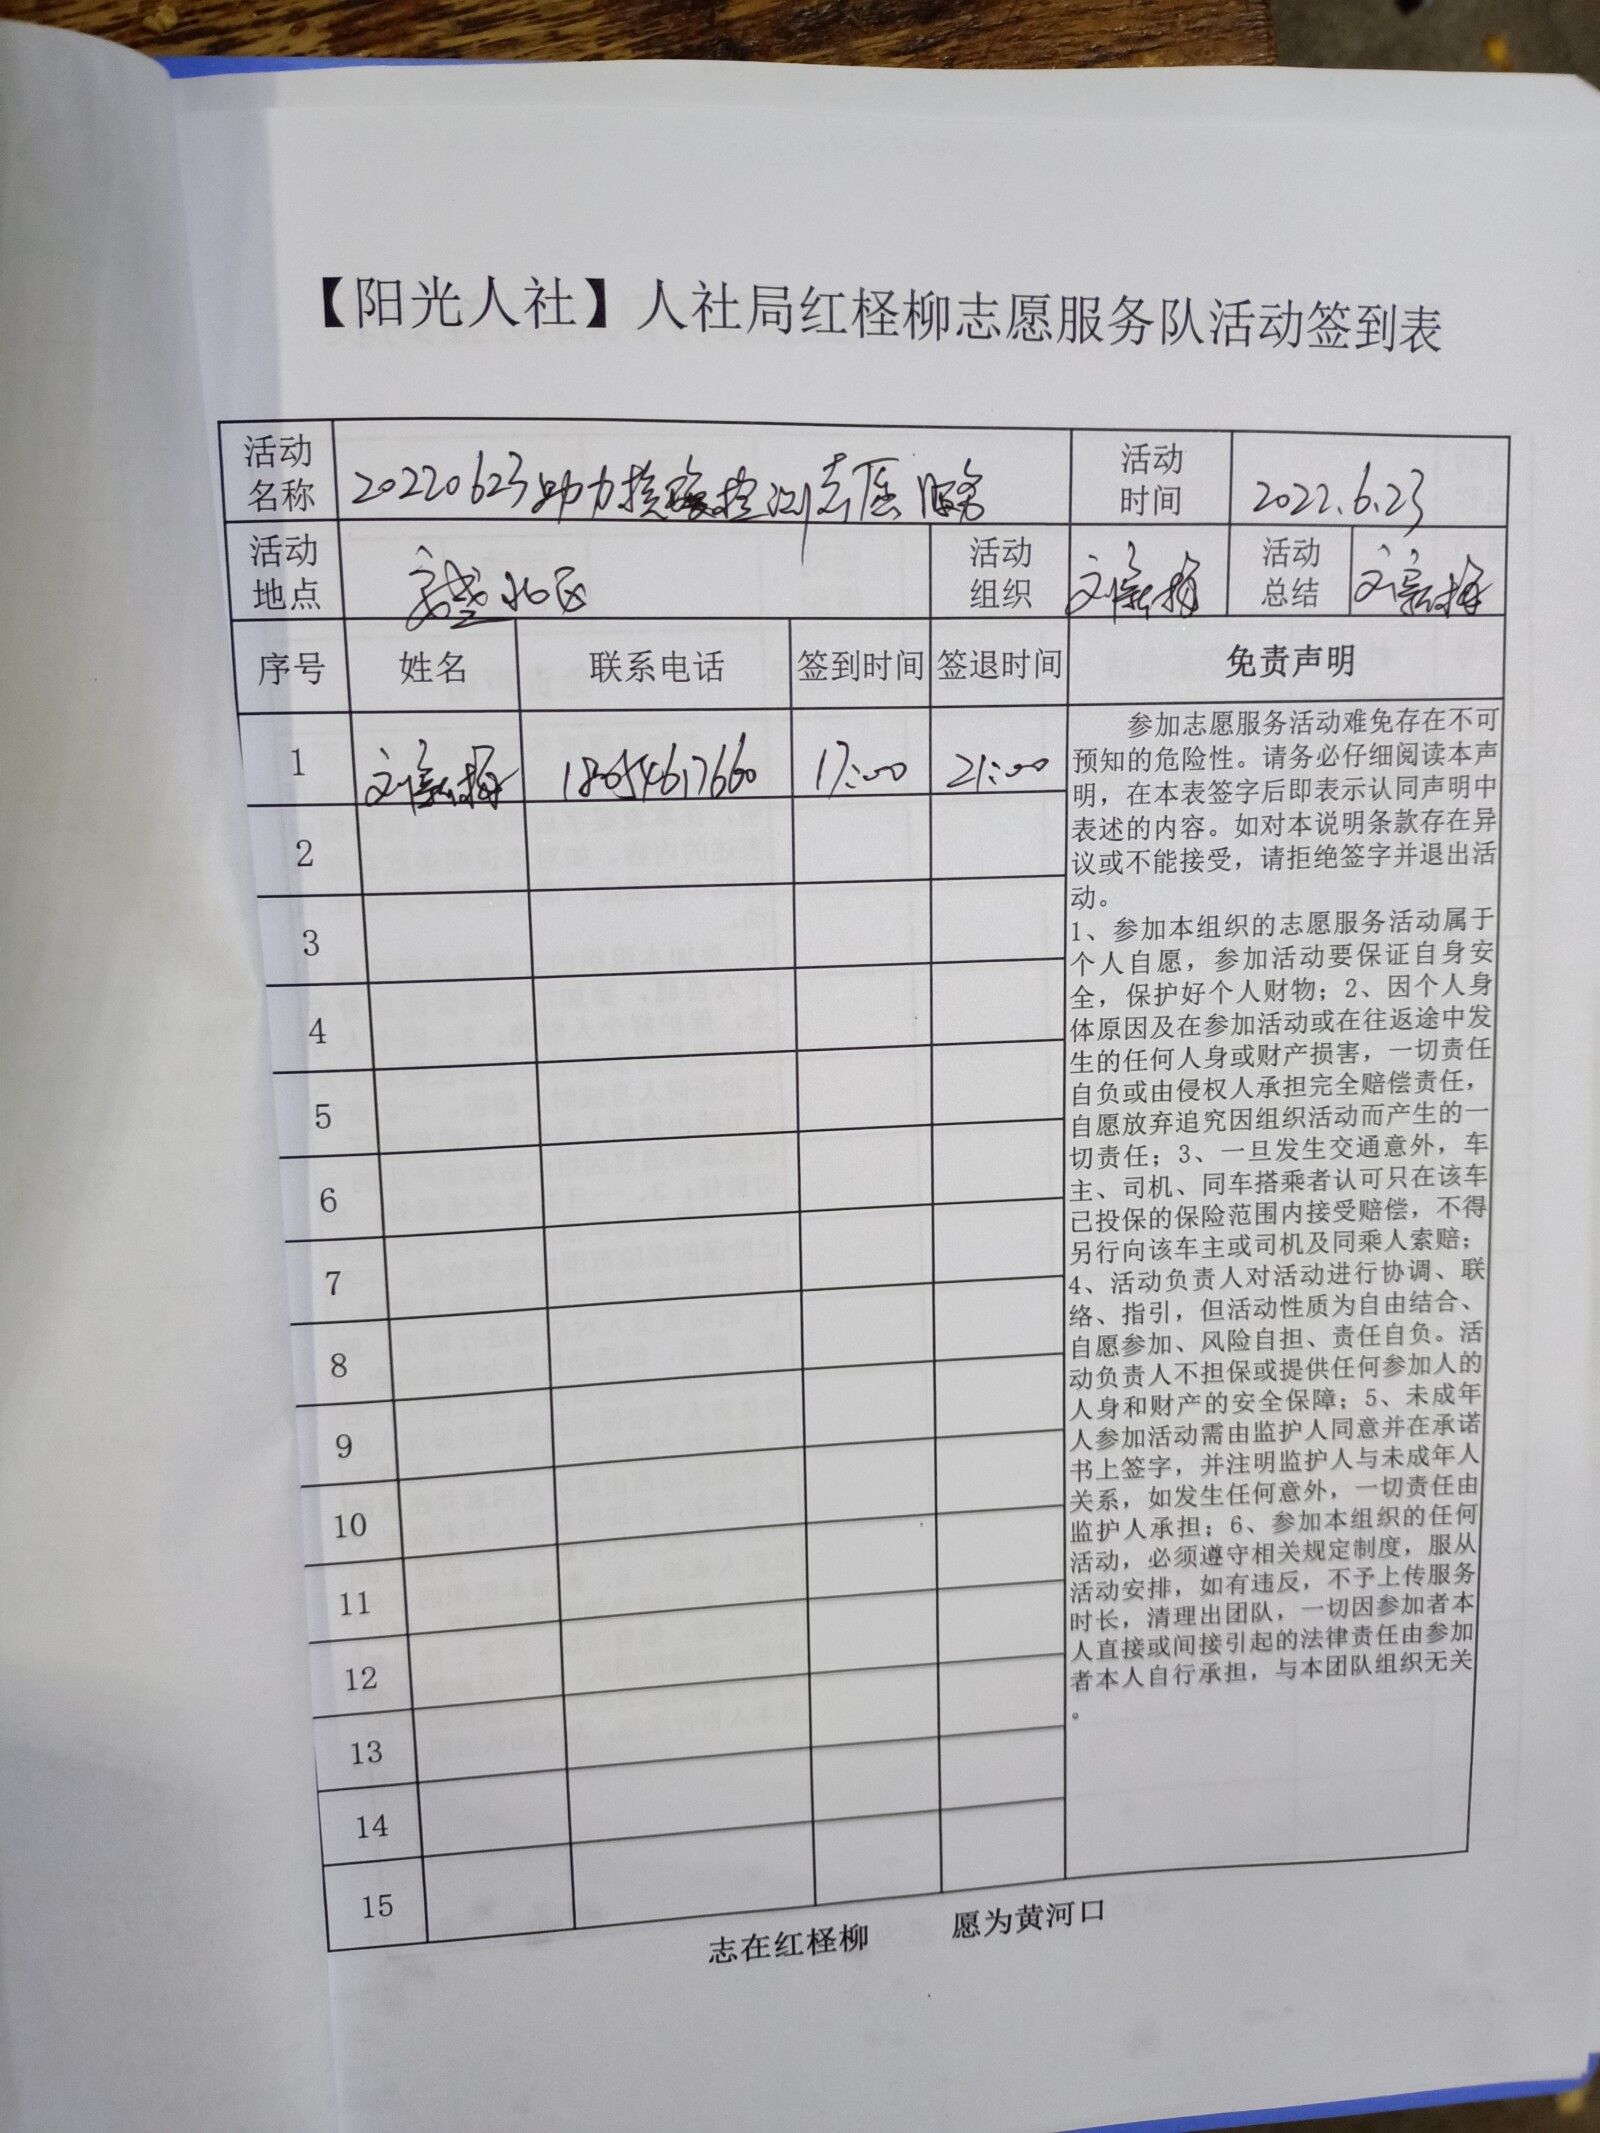 【阳光人社】人社局红柽柳志愿服务队活动签到表
活动名称 20220623助力核酸检测志愿服务 活动时间 2022.6.23
活动地点 北区 活动组织 刘 活动总结 刘
序号 姓名 联系电话 签到时间 签退时间 免责声明
1 刘 18054617660 17:00 21:00
2
3
4
5
6
7
8
9
10
11
12
13
14
15
参加志愿服务活动难免存在不可
预知的危险性。请务必仔细阅读本声
明，在本表签字后即表示认同声明中
表述的内容。如对本说明条款存在异
议或不能接受，请拒绝签字并退出活
动。
1、参加本组织的志愿服务活动属于
个人自愿，参加活动要保证自身安
全，保护好个人财物；2、因个人身
体原因及在参加活动或在往返途中发
生的任何人身或财产损害，一切责任
自负或由侵权人承担完全赔偿责任，
自愿放弃追究因组织活动而产生的一
切责任；3、一旦发生交通意外，车
主、司机、同车搭乘者认可只在该车
已投保的保险范围内接受赔偿，不得
另行向该车主或司机及同乘人索赔；
4、活动负责人对活动进行协调、联
络、指引，但活动性质为自由结合、
自愿参加、风险自担、责任自负。活
动负责人不担保或提供任何参加人的
人身和财产的安全保障；5、未成年
人参加活动需由监护人同意并在承诺
书上签字，并注明监护人与未成年人
关系，如发生任何意外，一切责任由
监护人承担；6、参加本组织的任何
活动，必须遵守相关规定制度，服从
活动安排，如有违反，不予上传服务
时长，清理出团队，一切因参加者本
人直接或间接引起的法律责任由参加
者本人自行承担，与本团队组织无关
。
志在红柽柳 愿为黄河口